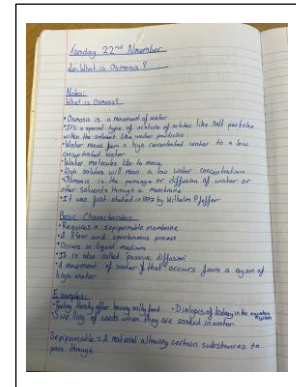 Tuesday 22nd November
Lo: What is Osmosis?
Notes:
What is Osmosis?
• Osmosis is a movement of water
• It's a special type of mixture of solute like salt particles
within the solvent like water particles
• Water moves from a high concentrated water to a low
concentrated water
• Water molecules like to move
• High solutes will mean a low water concentration
• Osmosis is the passage or diffusion of water or
other solvents through a membrane
• It was first studied in 1877 by Wilhelm Pfeffer
Basic Characteristics:
• Requires a semipermeable membrane
• A slow and spontaneous process
• Occurs in liquid medium
• It is also called passive diffusion
• A movement of water that occurs from a region of
high water
Examples:
• feeling thirsty after having salty food • Dialysis of kidney in the excretory system
• Swelling of seeds when they are soaked in water
: A material allowing certain substances to
pass through